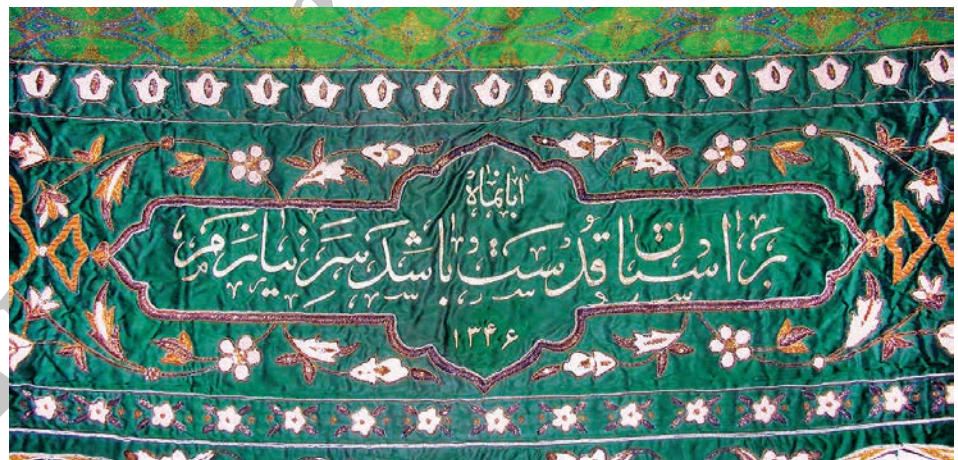 ابانماه
بر استان قدست باشد سر نیازم
۱۳۴۶